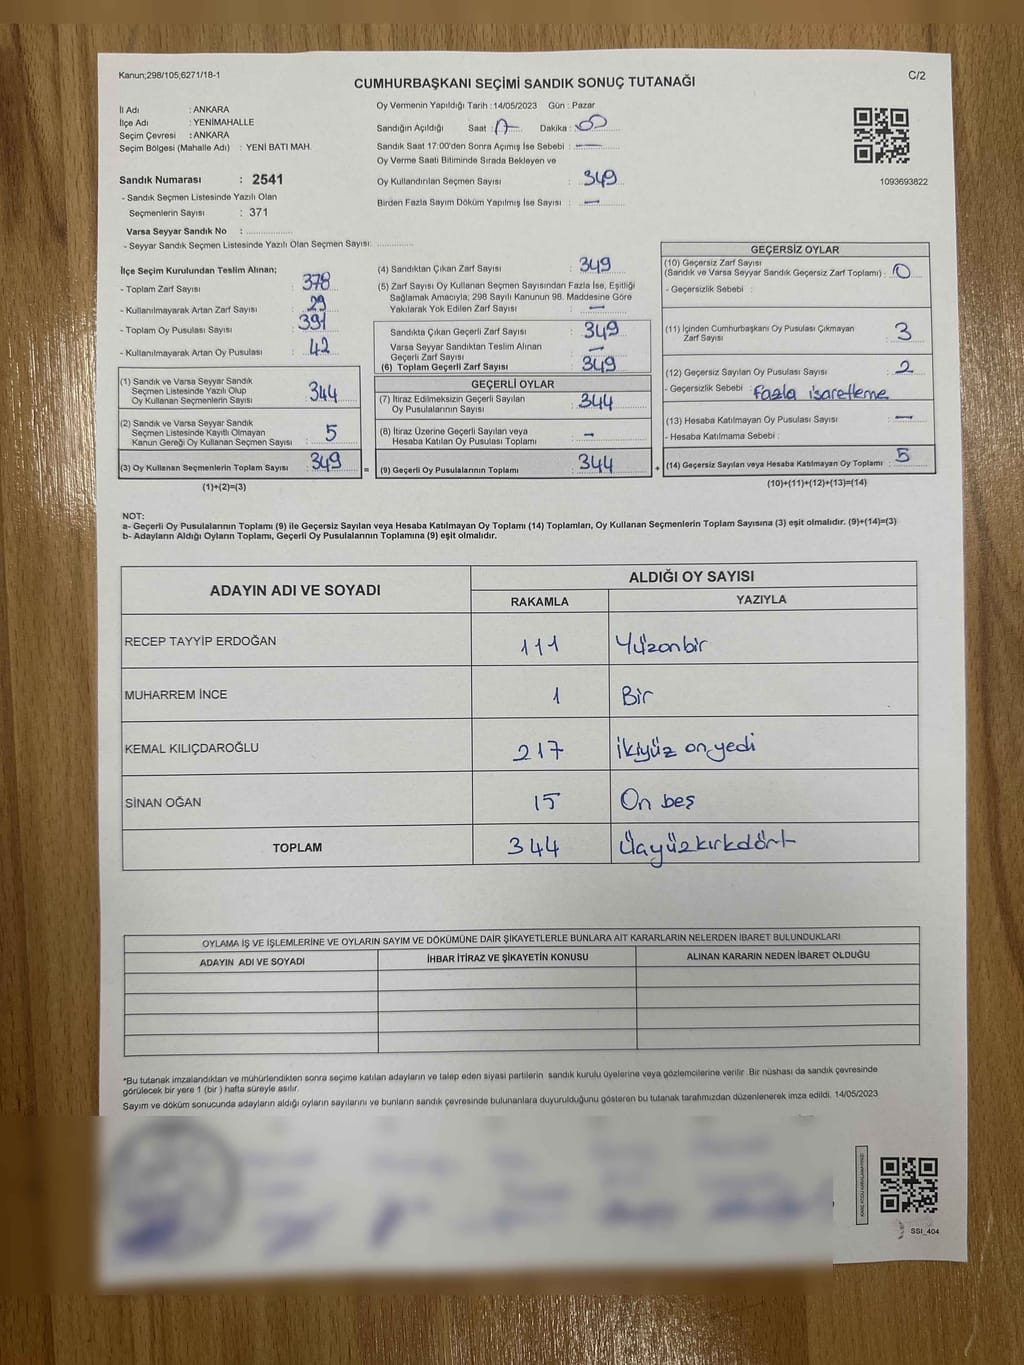 Kanun;298/105,6271/18-1
CUMHURBAŞKANI SEÇİMİ SANDIK SONUÇ TUTANAĞI
C/2
İl Adı : ANKARA
İlçe Adı : YENİMAHALLE
Seçim Çevresi : ANKARA
Seçim Bölgesi (Mahalle Adı) : YENİ BATI MAH.
Sandık Numarası : 2541
- Sandık Seçmen Listesinde Yazılı Olan
Seçmenlerin Sayısı : 371
Varsa Seyyar Sandık No :
- Seyyar Sandık Seçmen Listesinde Yazılı Olan Seçmen Sayısı:
Oy Vermenin Yapıldığı Tarih : 14/05/2023 Gün : Pazar
Sandığın Açıldığı Saat : Dakika : 00
Sandık Saat 17:00'den Sonra Açımış İse Sebebi : —
Oy Verme Saati Bitiminde Sırada Bekleyen ve
Oy Kullandırılan Seçmen Sayısı : 349
Birden Fazla Sayım Döküm Yapılmış İse Sayısı : —
1093693822
İlçe Seçim Kurulundan Teslim Alınan;
- Toplam Zarf Sayısı : 378
- Kullanılmayarak Artan Zarf Sayısı : 29
- Toplam Oy Pusulası Sayısı : 391
- Kullanılmayarak Artan Oy Pusulası : 42
(1) Sandık ve Varsa Seyyar Sandık
Seçmen Listesinde Yazılı Olup
Oy Kullanan Seçmenlerin Sayısı : 344
(2) Sandık ve Varsa Seyyar Sandık
Seçmen Listesinde Kayıtlı Olmayan
Kanun Gereği Oy Kullanan Seçmen Sayısı : 5
(3) Oy Kullanan Seçmenlerin Toplam Sayısı : 349
(1)+(2)=(3)
=
(4) Sandıktan Çıkan Zarf Sayısı : 349
(5) Zarf Sayısı Oy Kullanan Seçmen Sayısından Fazla İse, Eşitliği
Sağlamak Amacıyla; 298 Sayılı Kanunun 98. Maddesine Göre
Yakılarak Yok Edilen Zarf Sayısı : —
Sandıkta Çıkan Geçerli Zarf Sayısı : 349
Varsa Seyyar Sandıktan Teslim Alınan
Geçerli Zarf Sayısı : —
(6) Toplam Geçerli Zarf Sayısı : 349
GEÇERLİ OYLAR
(7) İtiraz Edilmeksizin Geçerli Sayılan
Oy Pusulalarının Sayısı : 344
(8) İtiraz Üzerine Geçerli Sayılan veya
Hesaba Katılan Oy Pusulası Toplamı : —
(9) Geçerli Oy Pusulalarının Toplamı : 344
+
GEÇERSİZ OYLAR
(10) Geçersiz Zarf Sayısı
(Sandık ve Varsa Seyyar Sandık Geçersiz Zarf Toplamı) : 0
- Geçersizlik Sebebi :
(11) İçinden Cumhurbaşkanı Oy Pusulası Çıkmayan
Zarf Sayısı : 3
(12) Geçersiz Sayılan Oy Pusulası Sayısı : 2
- Geçersizlik Sebebi : fazla isaretleme
(13) Hesaba Katılmayan Oy Pusulası Sayısı : —
- Hesaba Katılmama Sebebi :
(14) Geçersiz Sayılan veya Hesaba Katılmayan Oy Toplamı : 5
(10)+(11)+(12)+(13)=(14)
NOT:
a- Geçerli Oy Pusulalarının Toplamı (9) ile Geçersiz Sayılan veya Hesaba Katılmayan Oy Toplamı (14) Toplamları, Oy Kullanan Seçmenlerin Toplam Sayısına (3) eşit olmalıdır. (9)+(14)=(3)
b- Adayların Aldığı Oyların Toplamı, Geçerli Oy Pusulalarının Toplamına (9) eşit olmalıdır.
ADAYIN ADI VE SOYADI ALDIĞI OY SAYISI
RAKAMLA YAZIYLA
RECEP TAYYİP ERDOĞAN 111 Yüzonbir
MUHARREM İNCE 1 Bir
KEMAL KILIÇDAROĞLU 217 ikiyüz onyedi
SİNAN OĞAN 15 On beş
TOPLAM 344 Üçyüzkırkdört
OYLAMA İŞ VE İŞLEMLERİNE VE OYLARIN SAYIM VE DÖKÜMÜNE DAİR ŞİKAYETLERLE BUNLARA AİT KARARLARIN NELERDEN İBARET BULUNDUKLARI
ADAYIN ADI VE SOYADI İHBAR İTİRAZ VE ŞİKAYETİN KONUSU ALINAN KARARIN NEDEN İBARET OLDUĞU
*Bu tutanak imzalandıktan ve mühürlendikten sonra seçime katılan adayların ve talep eden siyasi partilerin sandık kurulu üyelerine veya gözlemcilerine verilir .Bir nüshası da sandık çevresinde
görülecek bir yere 1 (bir ) hafta süreyle asılır.
Sayım ve döküm sonucunda adayların aldığı oyların sayılarını ve bunların sandık çevresinde bulunanlara duyurulduğunu gösteren bu tutanak tarafımızdan düzenlenerek imza edildi. 14/05/2023
SSI_404